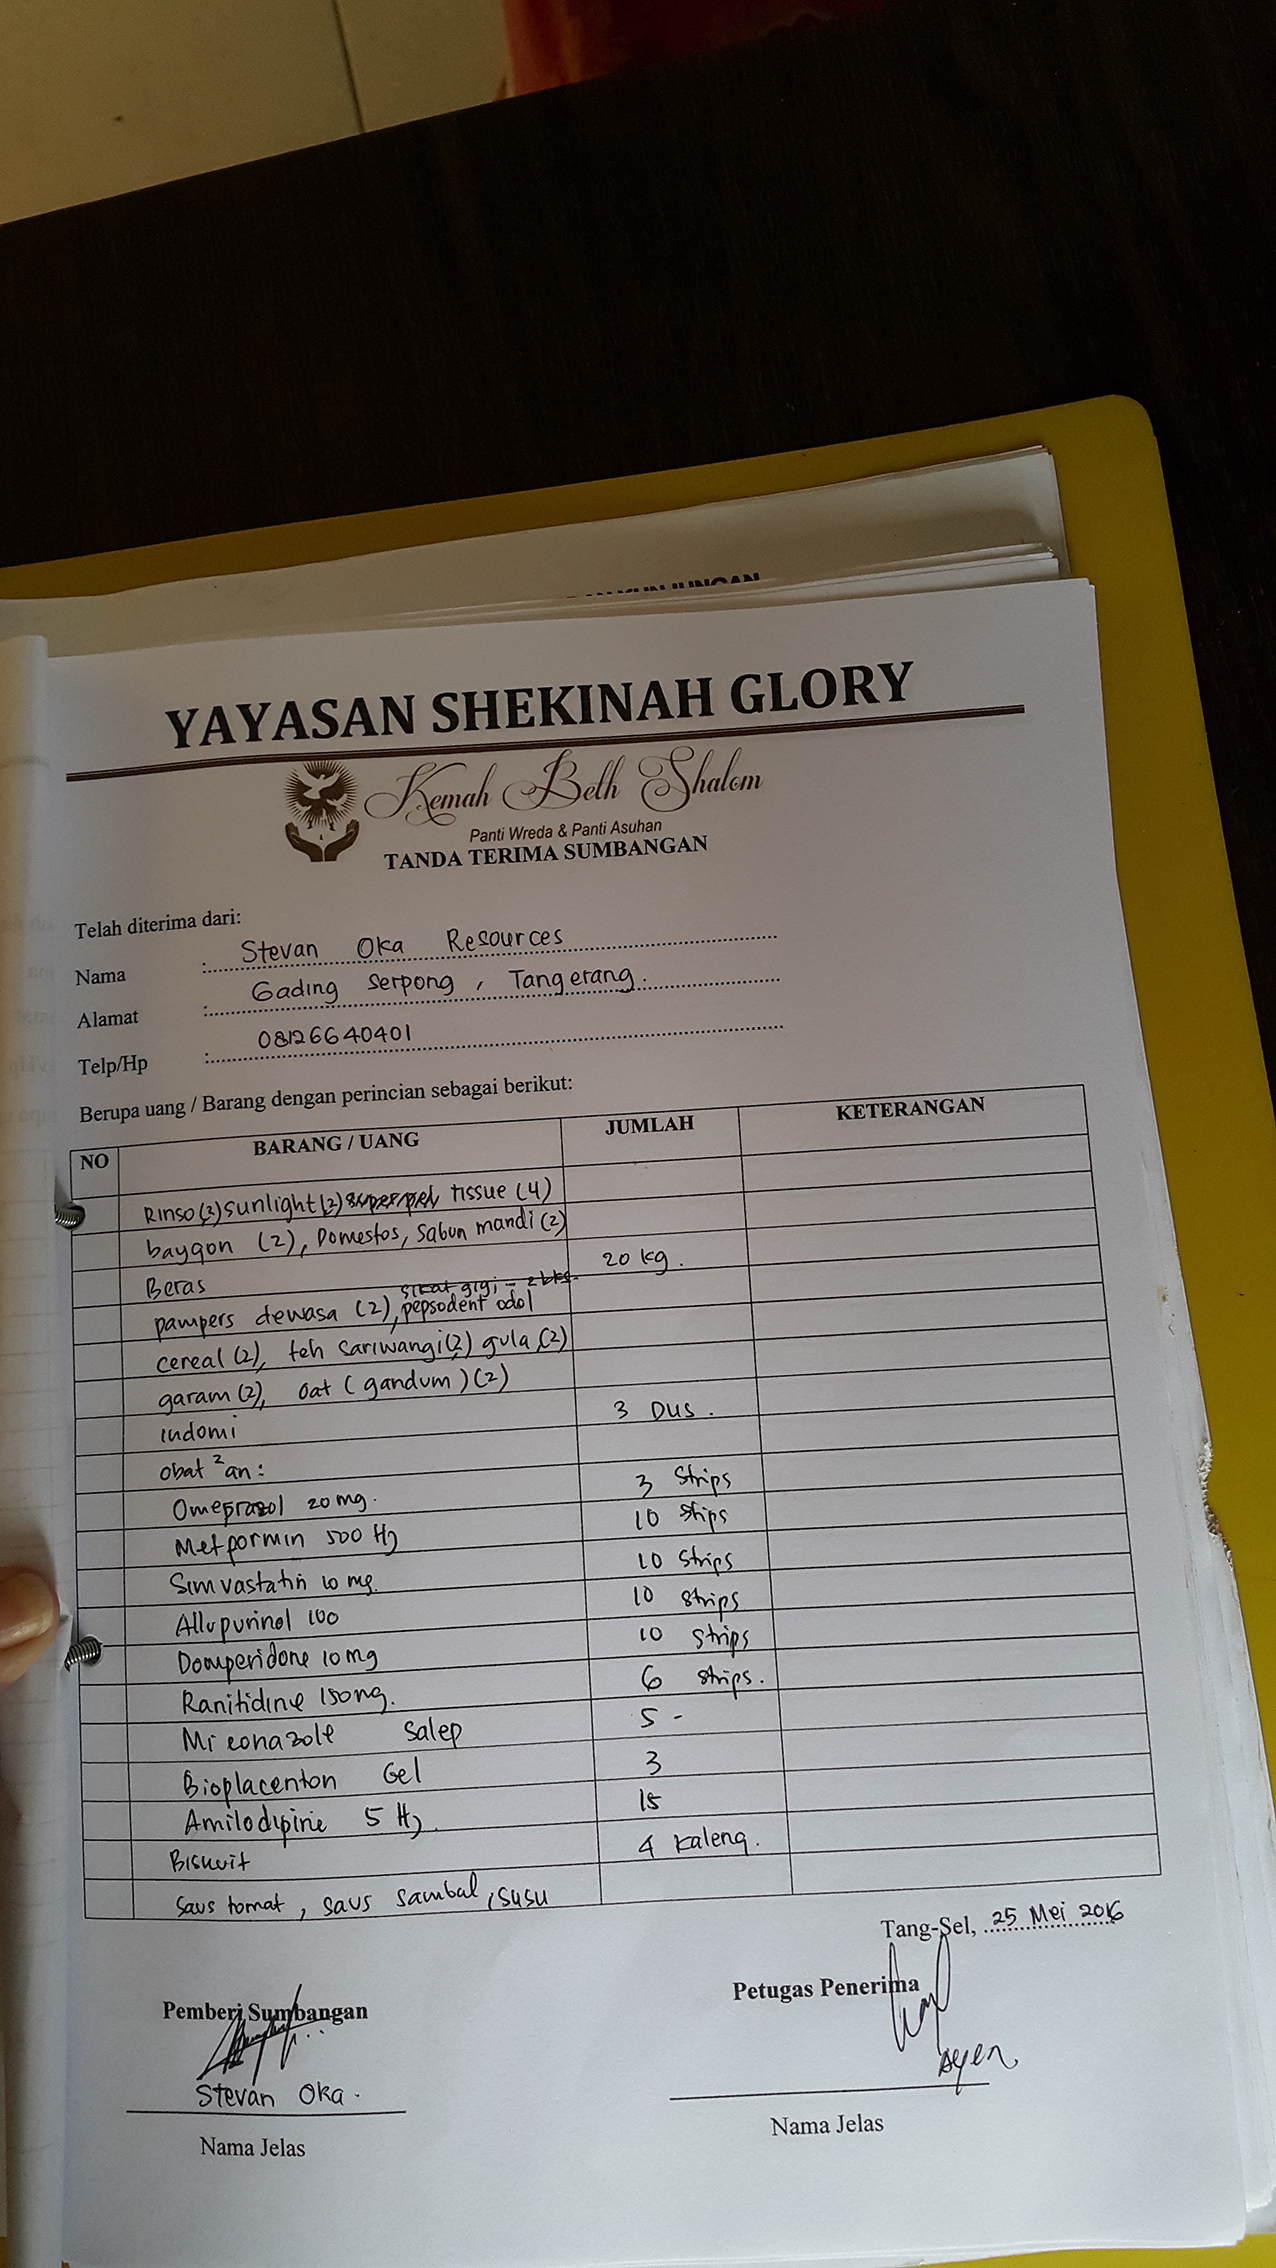 YAYASAN SHEKINAH GLORY
Kemah Beth Shalom
Panti Wreda & Panti Asuhan
TANDA TERIMA SUMBANGAN
Telah diterima dari:
Nama : Stevan Oka Resources
Alamat : Gading Serpong, Tangerang.
Telp/Hp : 08126640401
Berupa uang / Barang dengan perincian sebagai berikut:
NO BARANG / UANG JUMLAH KETERANGAN
Rinso (3) sunlight (2) superpel tissue (4)
baygon (2), Domestos, Sabun mandi (2)
Beras 20 kg.
sikat gigi - 2 bks
pampers dewasa (2), pepsodent odol
cereal (2), teh sariwangi (2) gula (2)
garam (2), oat (gandum) (2)
indomi 3 DUS.
obat ²an:
Omeprazol 20 mg. 3 Strips
Metpormin 500 Hg 10 Strips
Simvastatin 10 mg. 10 Strips
Allupurinol 100 10 strips
Domperidone 10 mg 10 strips
Ranitidine 150 mg. 6 strips.
Miconazole Salep 5 -
Bioplacenton Gel 3
Amilodipine 5 Hg. 15
Biskuit 4 kaleng.
Saus tomat, saus sambal, susu
Tang-Sel, 25 Mei 2016
Pemberi Sumbangan Petugas Penerima
Stevan Oka. Ayen
Nama Jelas Nama Jelas